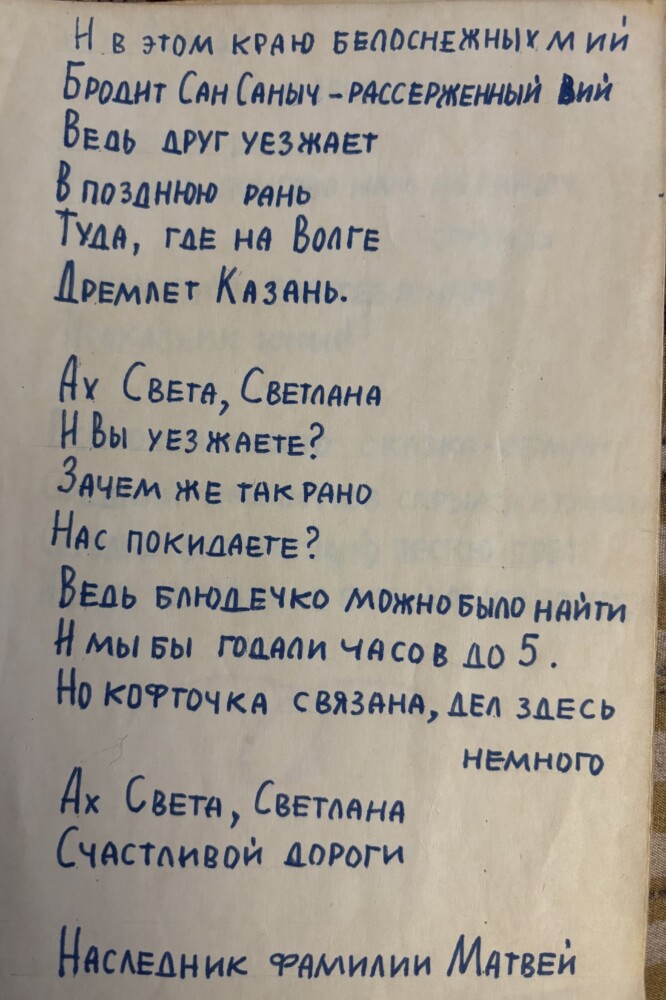 И в этом краю белоснежных мий
Бродит Сан Саныч - рассерженный Вий
Ведь друг уезжает
В позднюю рань
Туда, где на Волге
Дремлет Казань.
Ах Света, Светлана
И Вы уезжаете?
Зачем же так рано
Нас покидаете?
Ведь блюдечко можно было найти
И мы бы годали часов до 5.
Но кофточка связана, дел здесь
немного
Ах Света, Светлана
Счастливой дороги
Наследник фамилии Матвей